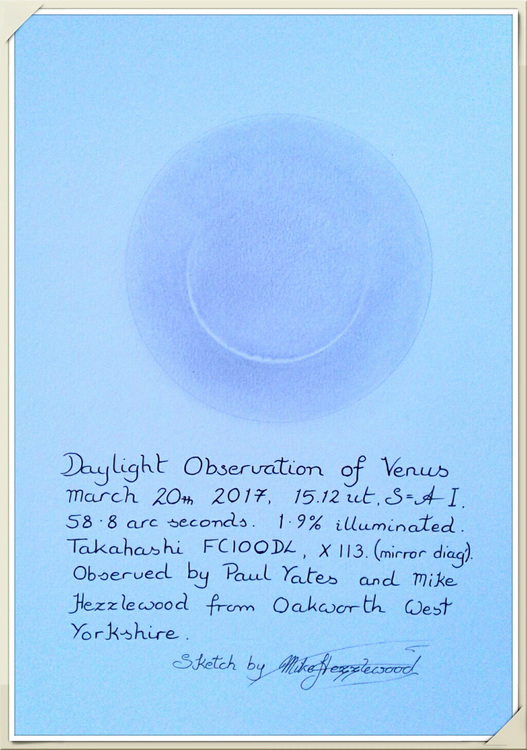 Daylight Observation of Venus
March 20th 2017, 15.12 ut, S=A I.
58.8 arc seconds. 1.9% illuminated.
Takahashi FC100DL, X 113. (mirror diag).
Observed by Paul Yates and Mike
Hezzlewood from Oakworth West
Yorkshire.
Sketch by MikeHezzlewood